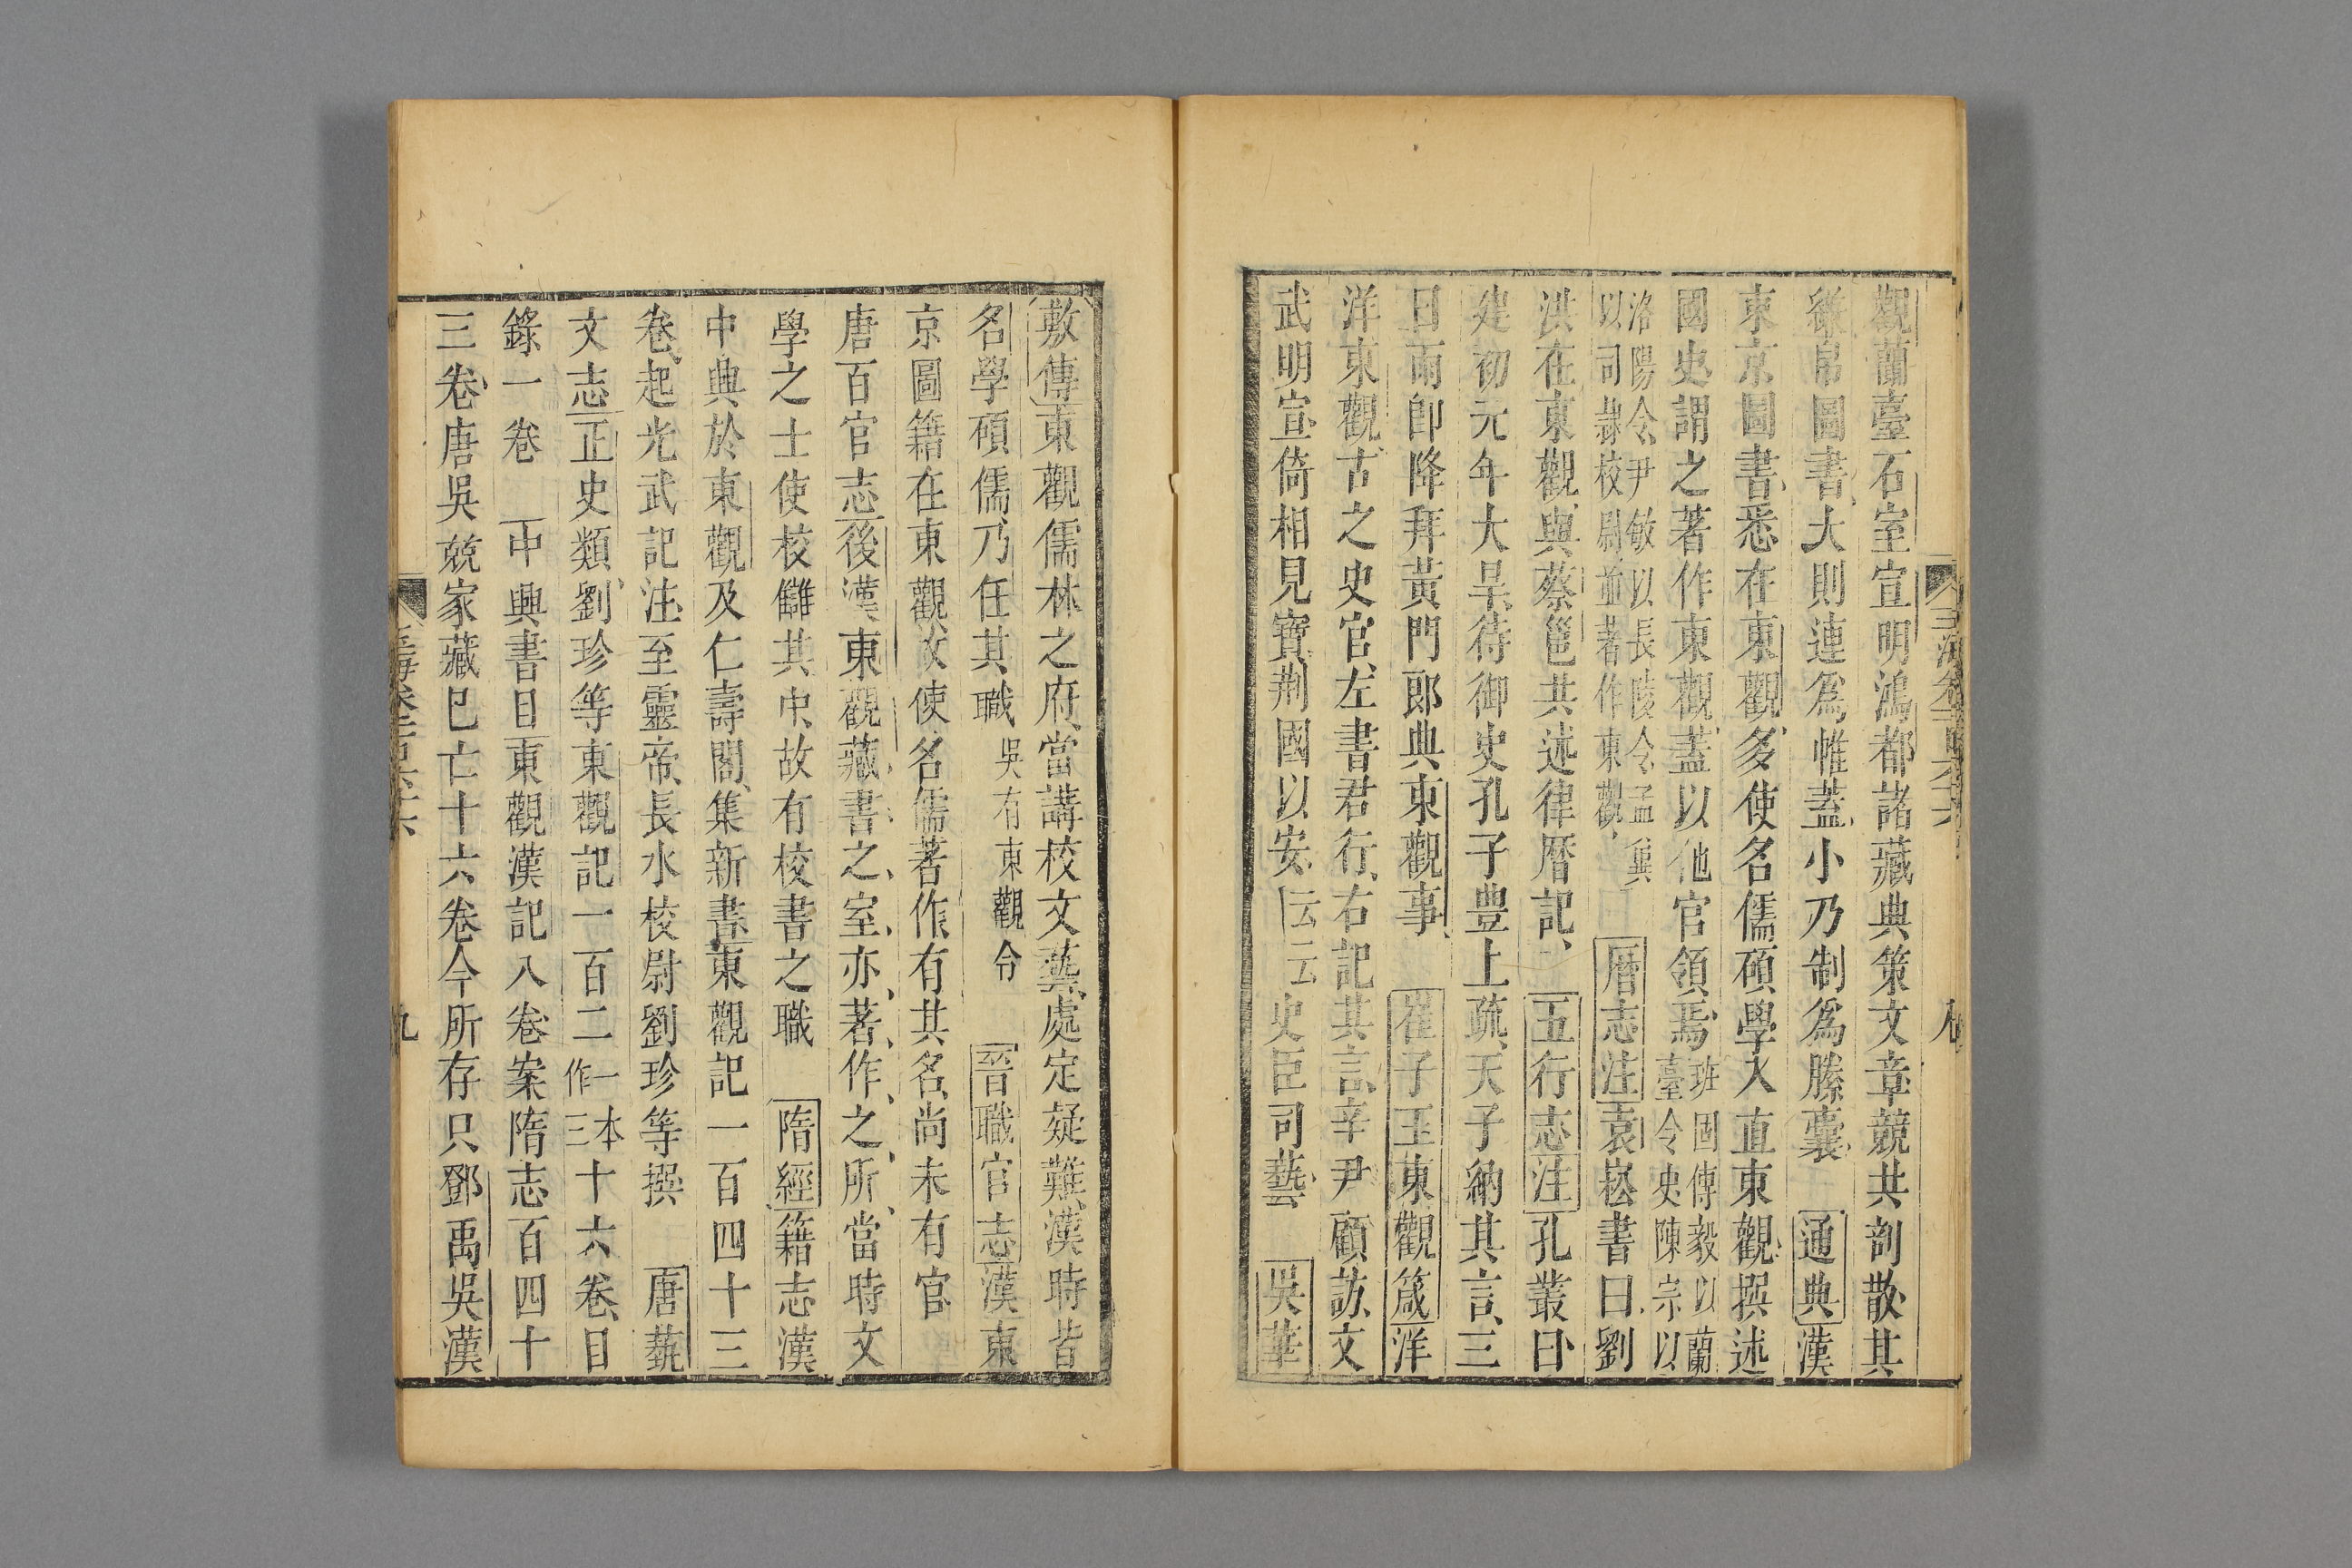 觀蘭臺石室宣明鴻都諸藏典策文章競共剖散其
縑帛圖書大則連爲帷蓋小乃制爲縢囊 通典漢
東京圖書悉在東觀多使名儒碩學入直東觀撰述
國史謂之著作東觀蓋以他官領焉班固傳毅以蘭臺令史陳宗以
洛陽令尹敏以長陵令孟冀以司隸校尉並著作東觀 曆志注袁崧書曰劉
洪在東觀與蔡邕共述律曆記 五行志注孔叢曰
建初元年大旱待御史孔子豊上疏天子納其言三
日雨即降拜黃門郎典東觀事 崔子玉東觀箴洋
洋東觀古之史官左書君行右記其言辛尹顧訪文
武明宣倚相見寶荆國以安云云史臣司藝 吳華
敷傳東觀儒林之府當講校文藝處定疑難漢時皆
名學碩儒乃任其職吳有東觀令 晉職官志漢東
京圖籍在東觀故使名儒著作有其名尚未有官
唐百官志後漢東觀藏書之室亦著作之所當時文
學之士使校讎其中故有校書之職 隋經籍志漢
中典於東觀及仁壽閣集新書東觀記一百四十三
卷起光武記注至靈帝長水校尉劉珍等撰 唐藝
文志正史類劉珍等東觀記一百二一本作三十六卷目
錄一卷 中興書目東觀漢記八卷案隋志百四十
三卷唐吳兢家藏已亡十六卷今所存只鄧禹吳漢
九